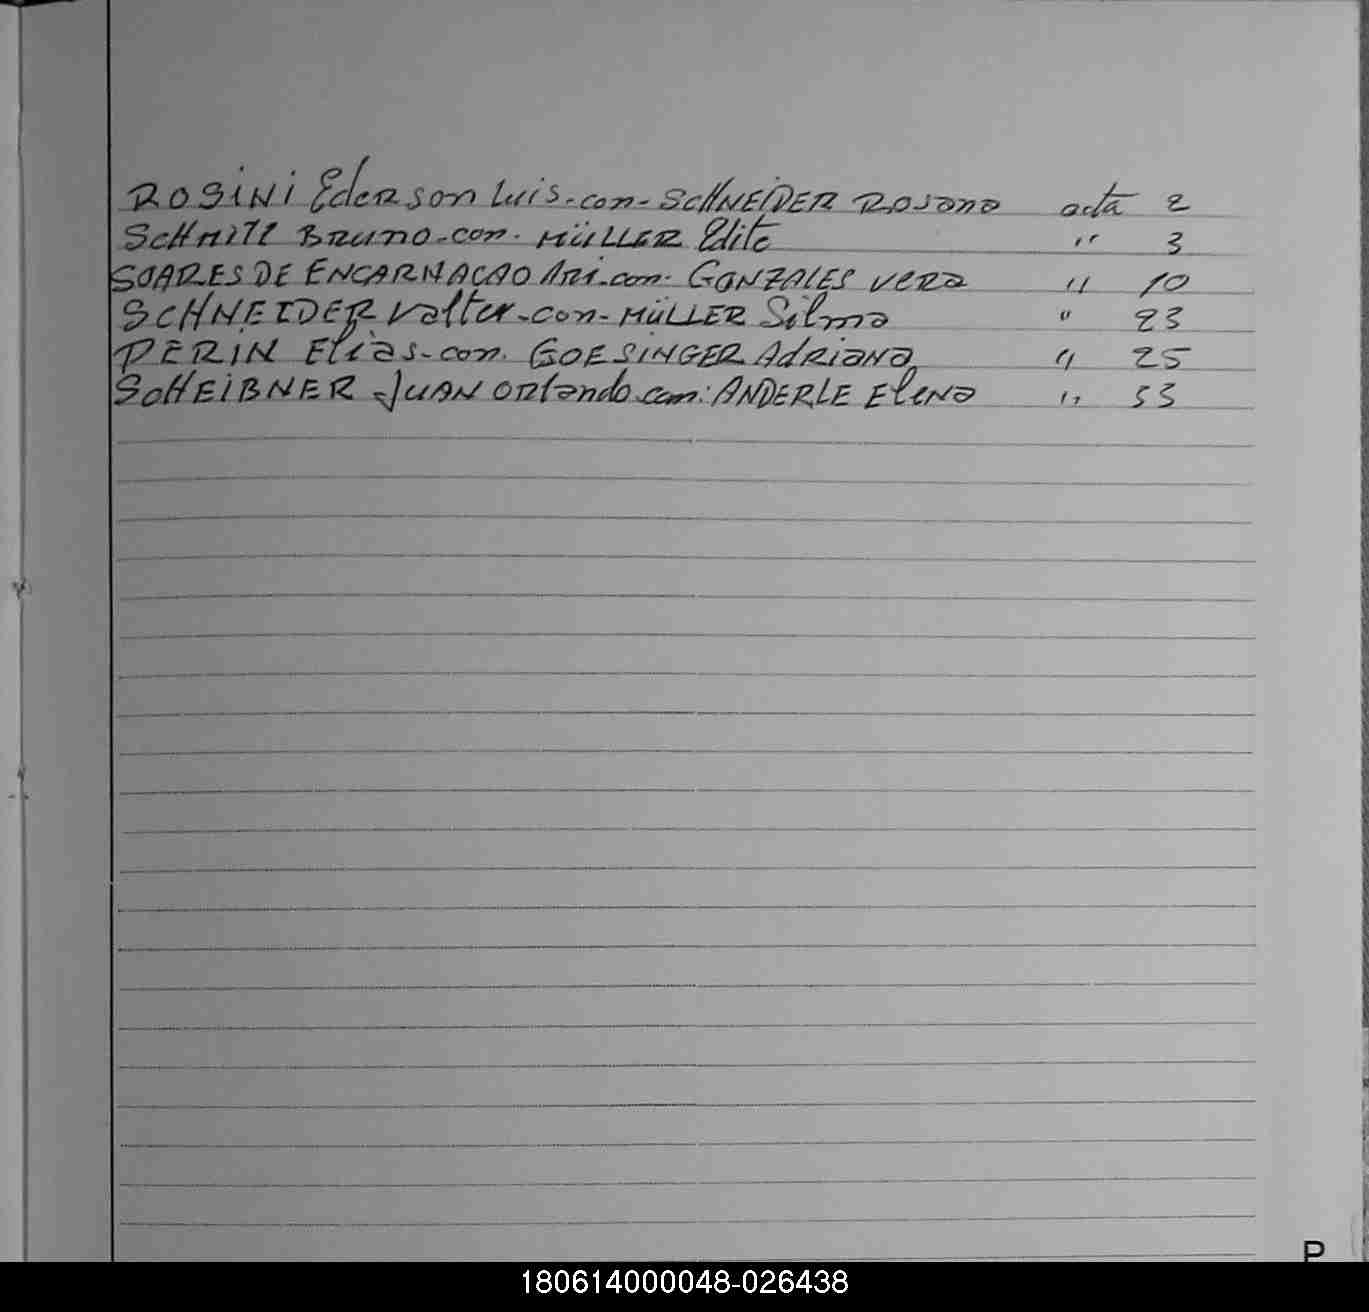 ROSINI Ederson Luis-con-SCHNEIDER Rosana acta 2
SCHMITT BRUNO-con-MÜLLER Edite " 3
SOARES DE ENCARNACAO Ari-con-GONZALES Vera " 10
SCHNEIDER Valter-con-MÜLLER Silma " 23
PERIN Elias-con-GOESINGER Adriana " 25
SCHEIBNER JUAN Orlando-con: ANDERLE Elena " 53
P
180614000048-026438